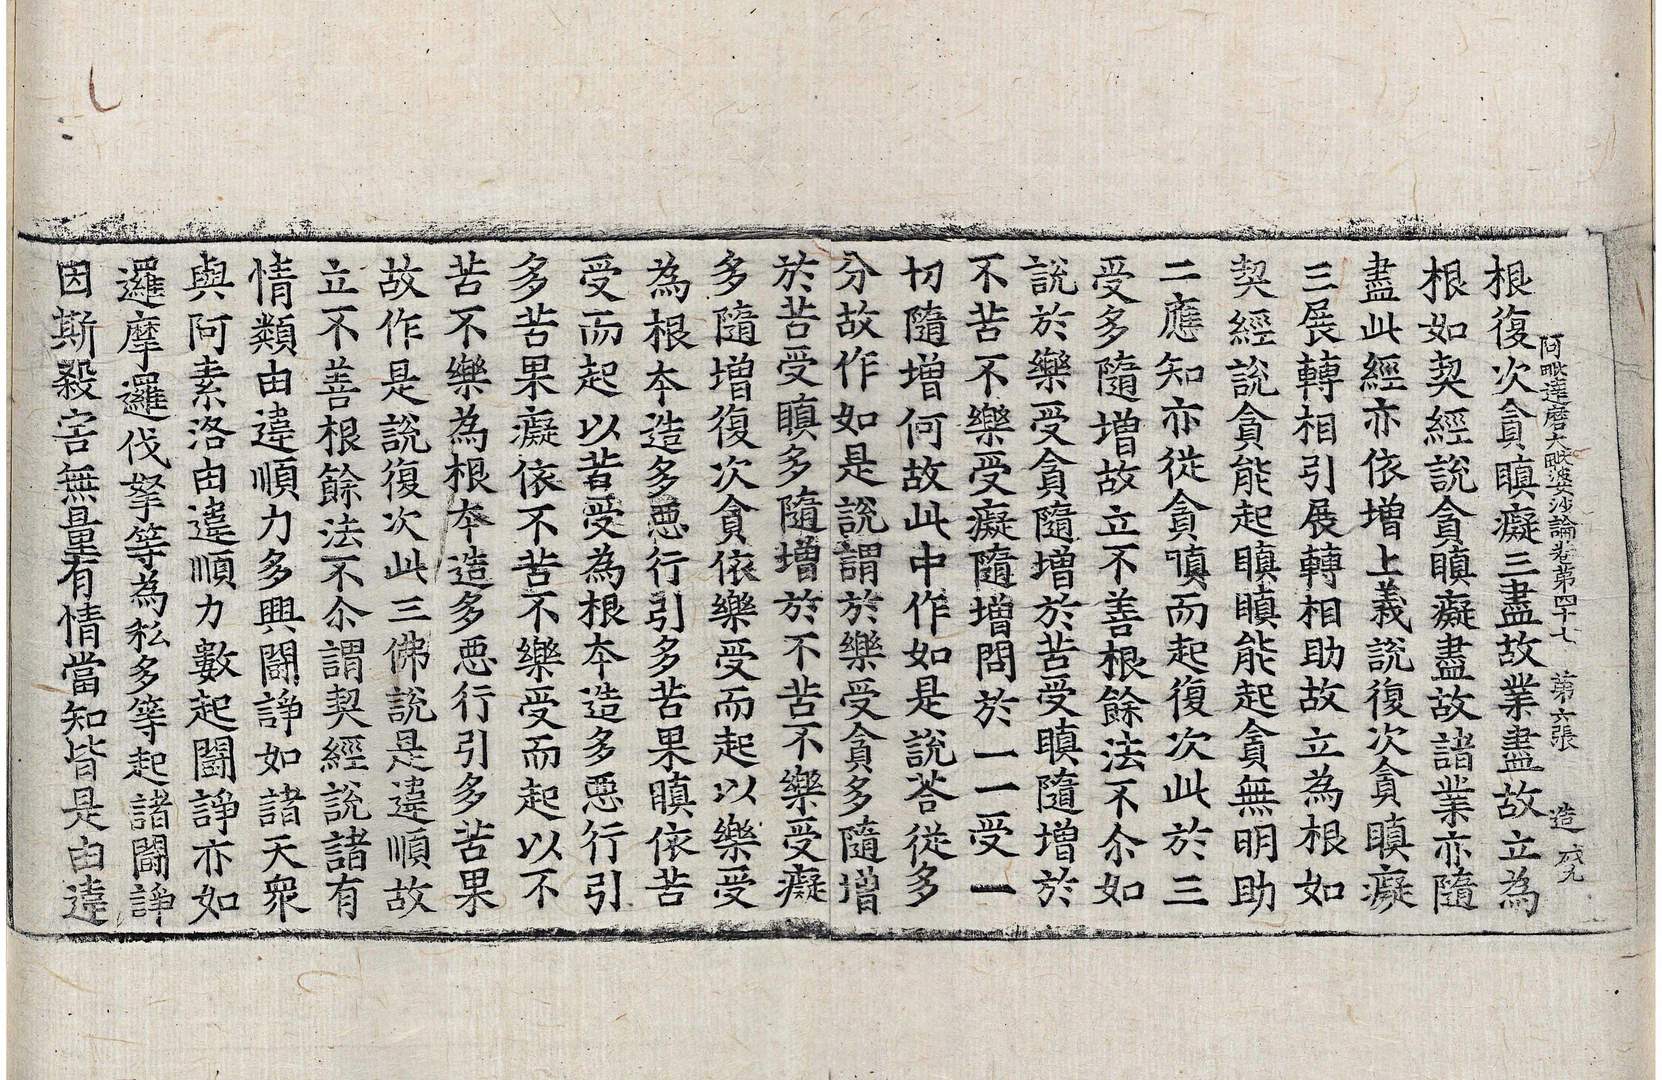 阿毗達磨大毗婆沙論卷第四十七 第六張 造
根復次貪瞋癡三盡故業盡故立為
根如契經說貪瞋癡盡故諸業亦隨
盡此經亦依增上義說復次貪瞋癡
三展轉相引展轉相助故立為根如
契經說貪能起瞋瞋能起貪無明助
二應知亦從貪瞋而起復次此於三
受多隨增故立不善根餘法不尒如
說於樂受貪隨增於苦受瞋隨增於
不苦不樂受癡隨增問於一一受一
切隨增何故此中作如是說荅從多
分故作如是說謂於樂受貪多隨增
於苦受瞋多隨增於不苦不樂受癡
多隨增復次貪依樂受而起以樂受
為根本造多惡行引多苦果瞋依苦
受而起以苦受為根本造多惡行引
多苦果癡依不苦不樂受而起以不
苦不樂為根本造多惡行引多苦果
故作是說復次此三佛說是違順故
立不善根餘法不尒謂契經說諸有
情類由違順力多興鬪諍如諸天眾
與阿素洛由違順力數起鬪諍亦如
邏摩邏伐拏等為私多等起諸鬪諍
因斯殺害無量有情當知皆是由違